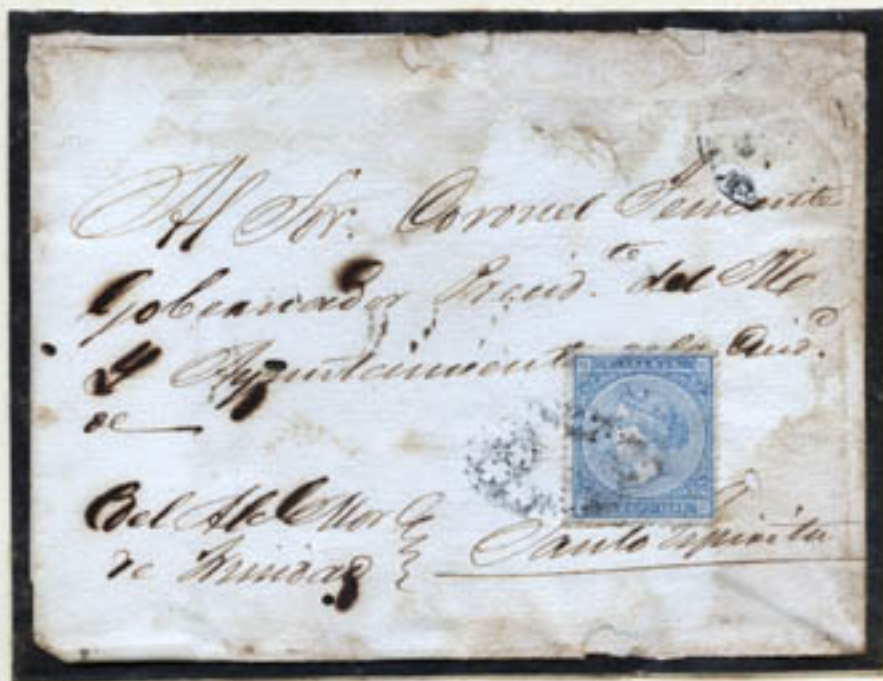 Al Sor. Coronel Teniente
Gobernador Presid.te del M
Y Ayuntamiento de la Ciud.d
de
Del Alc
de Trinidad
Santo Espiritu